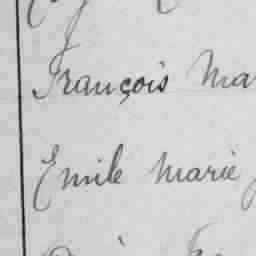 François Ma
Emile Marie